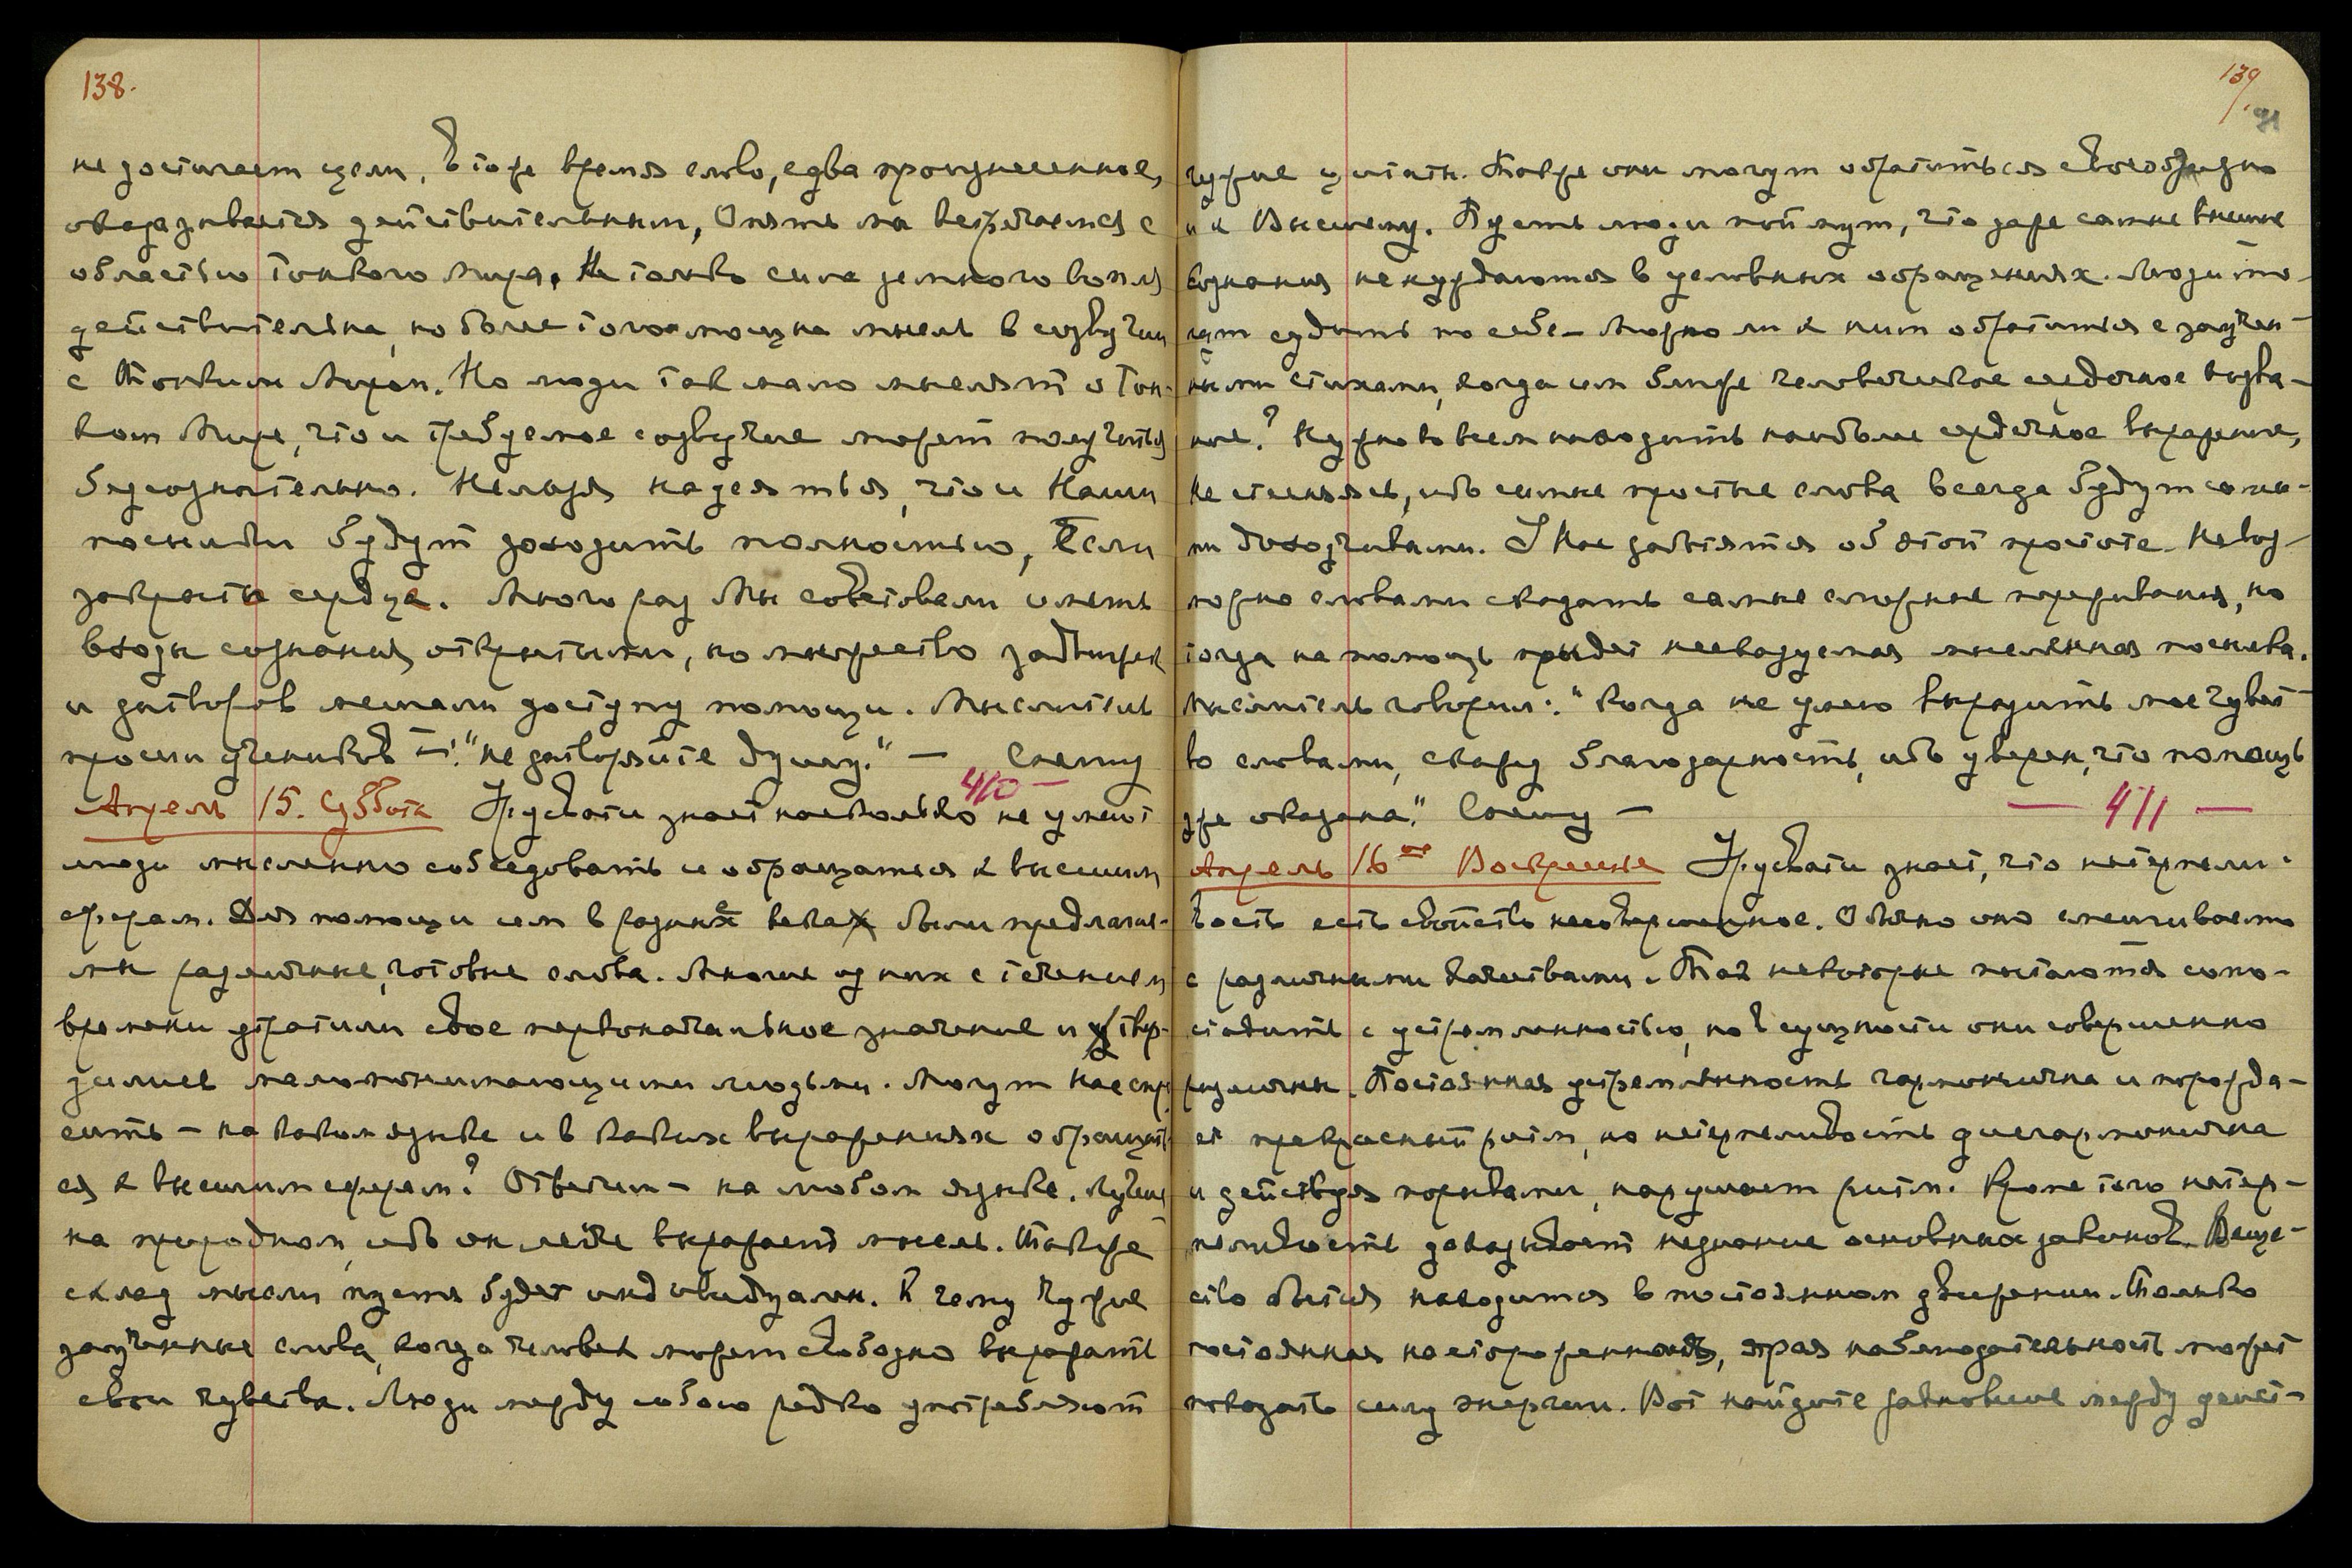 138.
не достигает цели, в то же время слово, едва произнесенное,
оказывается действительным, Опять мы встречаемся с
областью тонкого мира. Не только сила земного вопля
действительна, но более того мощна мысль в созвучии
с Тонким Миром. Но люди так мало мыслят о Тон-
ком Мире, что и требуемое созвучие может получиться
бессознательно. Нельзя надеяться, что и Наши
посылки будут доходить полностью, Если
закрыты сердца. Много раз Мы советовали иметь
входы сознания открытыми, но множество задвижек
и затворов мешали доступу помощи. Мыслитель
просил учеников —: "не затворяйте душу." — Спешу
410 —
Апрель 15. Суббота Урусвати знает насколько не умеют
люди мысленно собеседовать и обращаться к высшим
сферам. Для помощи им в разных веках были предлагае-
мы различные, готовые слова. Многие из них с течением
времени утратили свое первоначальное значение и твер-
дились малопонимающими людьми. Могут нас спро
сить — на каком языке и в каких выражениях обращать
ся к высшим сферам? Ответим — на любом языке. Лучше
на природном, ибо он легче выражает мысль. Также
склад мысли пусть будет индивидуален. К чему чужие
заученные слова, когда человек может свободно выражать
свои чувства. Люди между собою редко употребляют
139.
91
чужие цитаты. Также они могут обратиться своеобразно
и к Высшему. Пусть люди поймут, что даже самые высшие
сознания не нуждаются в условных обращениях. Люди мо-
гут судить по себе — Можно ли к ним обратиться с заучен-
ными стихами, когда им ближе человеческое сердечное воззва-
ние? Нужно во всем находить наиболее сердечное выражение,
Не стесняясь, ибо самые простые слова всегда будут самы-
ми доходчивыми. У Нас заботятся об этой простоте. Невоз-
можно словами сказать самые сложные переживания, но
тогда на помощь придет несказуемая мысленная посылка.
Мыслитель говорил: "Когда не умею выразить мое чувст-
во словами, скажу благодарность, ибо уверен, что помощь
уже оказана." Спешу —
— 411 —
Апрель 16ое Воскресенье Урусвати знает, что нетерпели-
вость есть свойство несовершенное. Обычно оно смешиваемо
с различными качествами. Так некоторые пытаются сопо-
ставить с устремленностью, но в сущности они совершенно
различны. Постоянная устремленность гармонична и порожда-
ет прекрасный ритм, но нетерпеливость дисгармонична
и действуя порывами, нарушает ритм. Кроме того нетер-
пеливость доказывает незнание основных законов. Веще-
ство бытия находится в постоянном движении. Только
постоянная настороженность, зоркая наблюдательность может
показать силу энергии. Вот найдите равновесие между дейст-